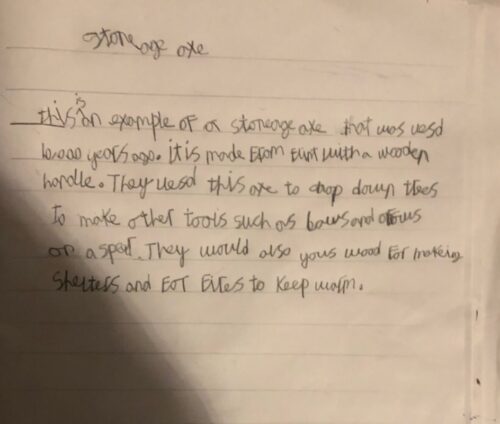 stoneage axe
this is an example of a stoneage axe that was uesd
10,000 years ago. it is made from flint with a wooden
handle. They uesd this axe to chop down trees
to make other tools such as bows and arous
or a spear. They would also yous wood for making
Shelters and for fires to keep warm.